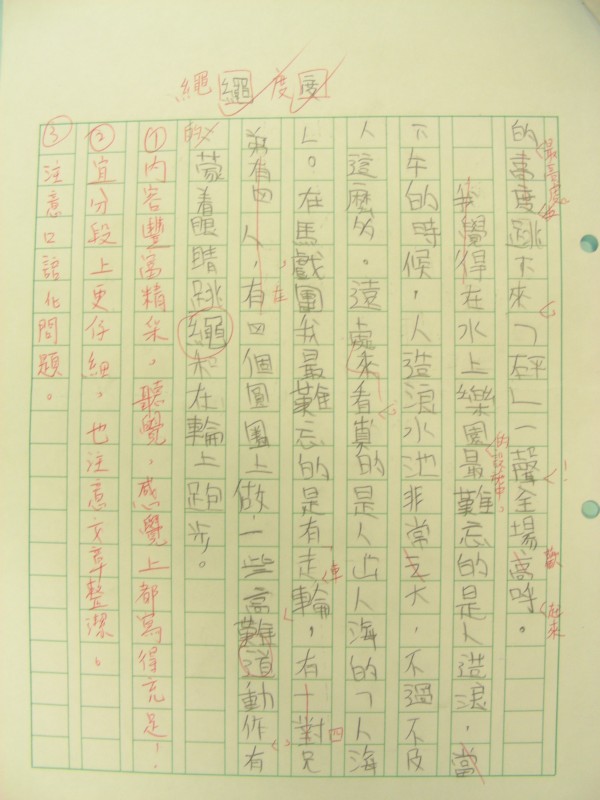 繩繩度度
的高度跳下來「砰」一聲全場高呼。
我覺得在水上樂園最難忘的是人造浪，當
下午的時候，人造浪水池非常之大，不過不及
人這麼多。遠處來看真的是人山人海的「人海
」。在馬戲團我最難忘的是有走輪，有十對兄
弟有四人，有四個圓圈上做一些高難道動作有
的蒙着眼睛跳繩和在輪上跑步。
①內容豐富精采，聽覺，感覺上都寫得充足！
②宜分段上更仔細，也注意文章整潔。
③注意口語化問題。